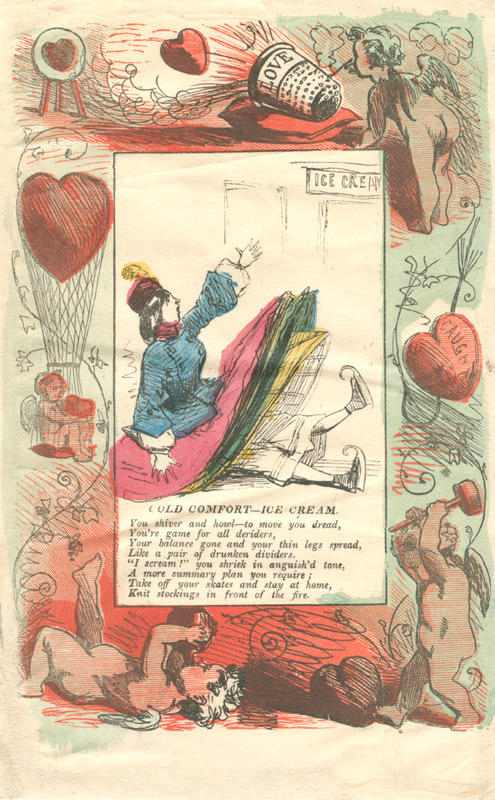 LOVE
ICE CREAM
CAUGHT
COLD COMFORT—ICE CREAM.
You shiver and howl—to move you dread,
You're game for all deriders,
Your balance gone and your thin legs spread,
Like a pair of drunken dividers.
"I scream!" you shriek in anguish'd tone,
A more summary plan you require;
Take off your skates and stay at home,
Knit stockings in front of the fire.